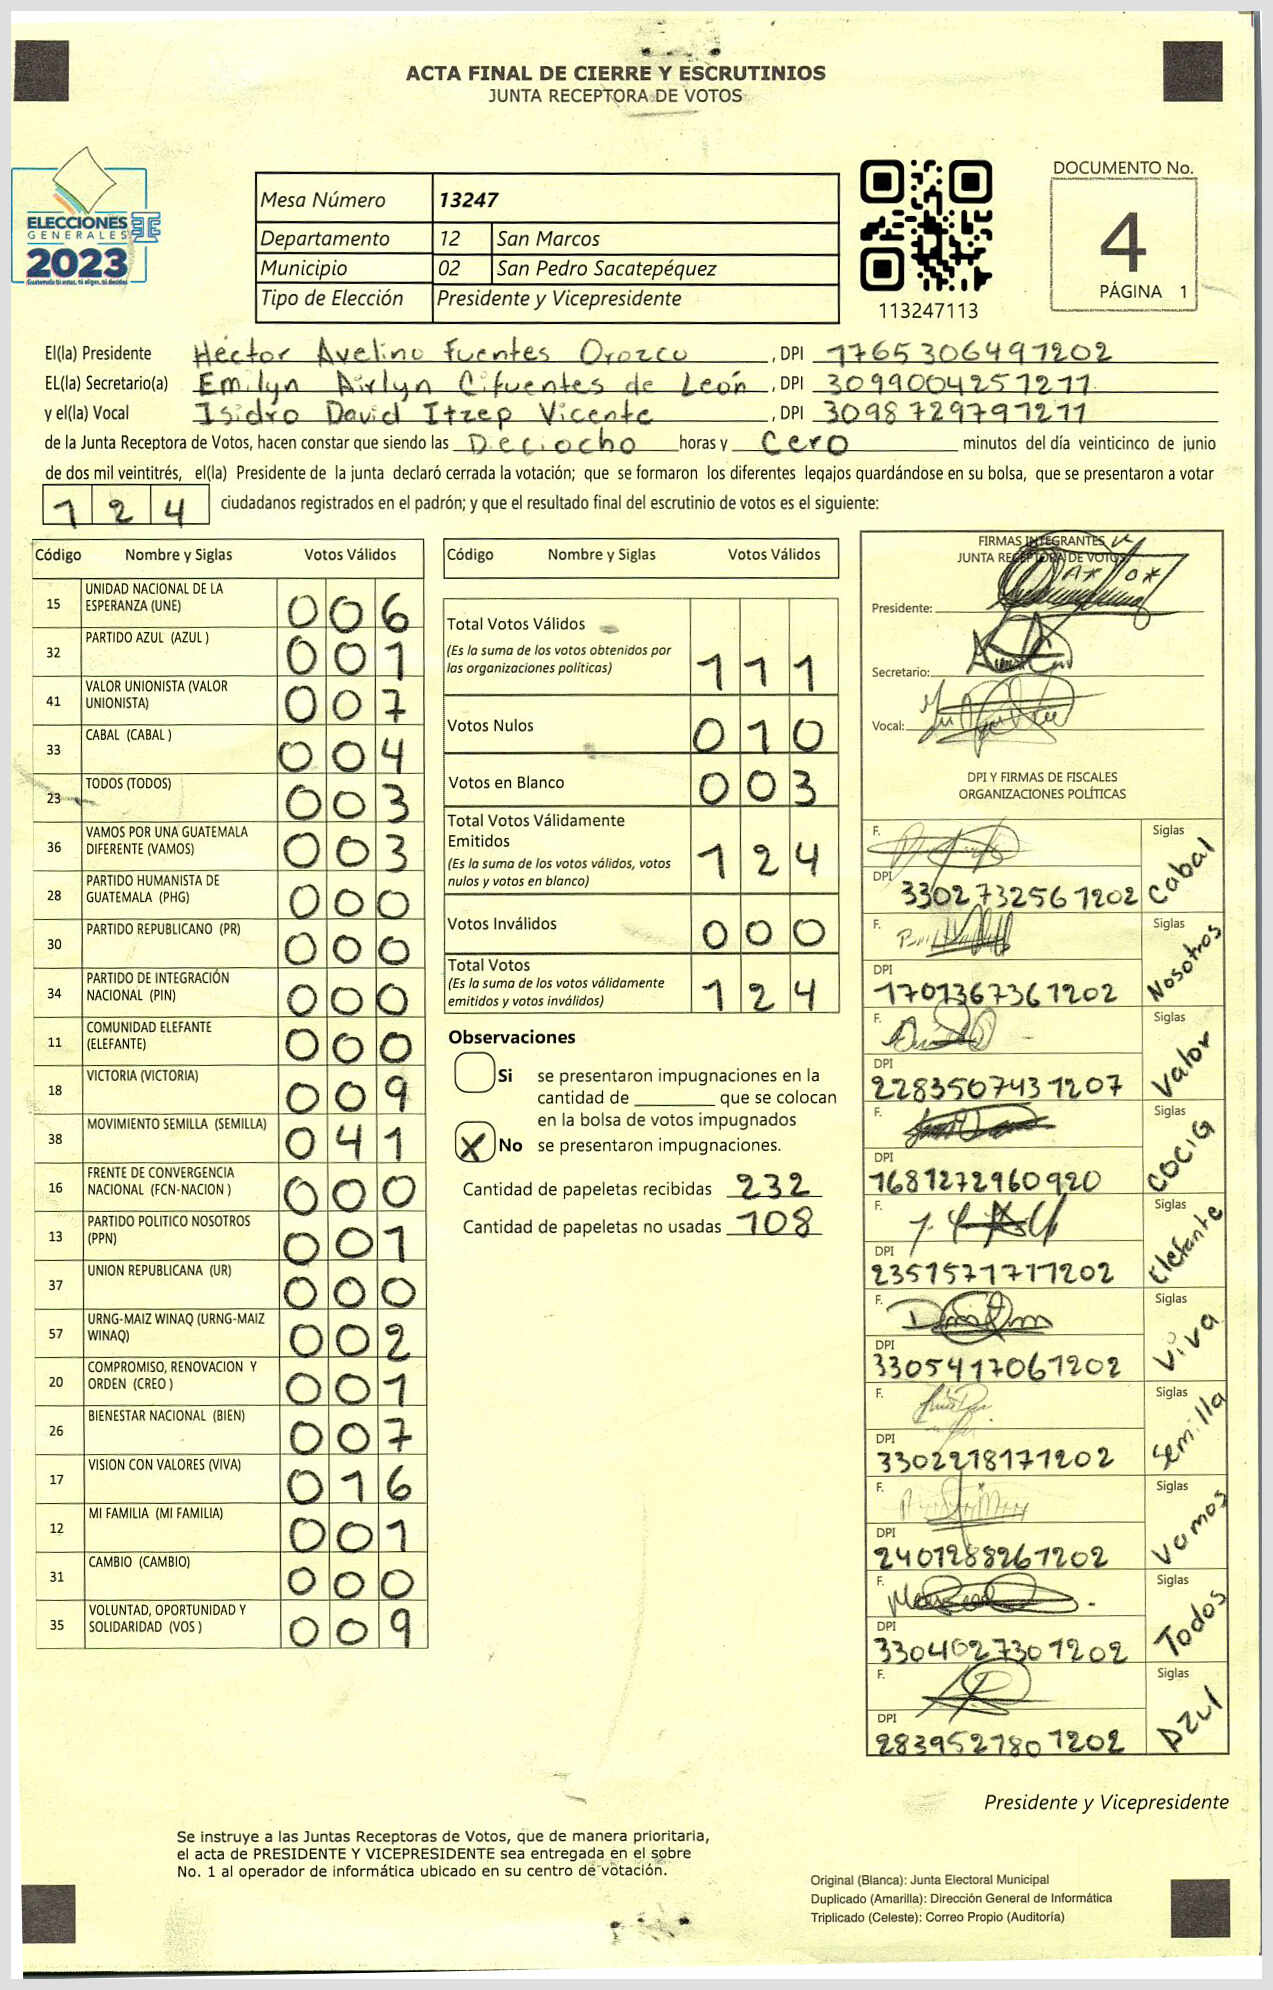 ACTA FINAL DE CIERRE Y ESCRUTINIOS
JUNTA RECEPTORA DE VOTOS
ELECCIONES
GENERALES
2023
Guatemala tú estas, tú eliges, tú decides
Mesa Número 13247
Departamento 12 San Marcos
Municipio 02 San Pedro Sacatepéquez
Tipo de Elección Presidente y Vicepresidente
113247113
DOCUMENTO No.
4
PÁGINA 1
El(la) Presidente Héctor Avelino Fuentes Orozco, DPI 1765306491202
EL(la) Secretario(a) Emilyn Airlyn Cifuentes de León, DPI 3099004251211
y el(la) Vocal Isidro David Itzep Vicente, DPI 3098729791211
de la Junta Receptora de Votos, hacen constar que siendo las Deciocho horas y Cero minutos del día veinticinco de junio
de dos mil veintitrés, el(la) Presidente de la junta declaró cerrada la votación; que se formaron los diferentes legajos guardándose en su bolsa, que se presentaron a votar
124 ciudadanos registrados en el padrón; y que el resultado final del escrutinio de votos es el siguiente:
Código Nombre y Siglas Votos Válidos
15 UNIDAD NACIONAL DE LA ESPERANZA (UNE) 006
32 PARTIDO AZUL (AZUL ) 001
41 VALOR UNIONISTA (VALOR UNIONISTA) 007
33 CABAL (CABAL ) 004
23 TODOS (TODOS) 003
36 VAMOS POR UNA GUATEMALA DIFERENTE (VAMOS) 003
28 PARTIDO HUMANISTA DE GUATEMALA (PHG) 000
30 PARTIDO REPUBLICANO (PR) 000
34 PARTIDO DE INTEGRACIÓN NACIONAL (PIN) 000
11 COMUNIDAD ELEFANTE (ELEFANTE) 000
18 VICTORIA (VICTORIA) 009
38 MOVIMIENTO SEMILLA (SEMILLA) 041
16 FRENTE DE CONVERGENCIA NACIONAL (FCN-NACION ) 000
13 PARTIDO POLITICO NOSOTROS (PPN) 001
37 UNION REPUBLICANA (UR) 000
57 URNG-MAIZ WINAQ (URNG-MAIZ WINAQ) 002
20 COMPROMISO, RENOVACION Y ORDEN (CREO ) 001
26 BIENESTAR NACIONAL (BIEN) 007
17 VISION CON VALORES (VIVA) 016
12 MI FAMILIA (MI FAMILIA) 001
31 CAMBIO (CAMBIO) 000
35 VOLUNTAD, OPORTUNIDAD Y SOLIDARIDAD (VOS ) 009
Código Nombre y Siglas Votos Válidos
Total Votos Válidos
(Es la suma de los votos obtenidos por
las organizaciones políticas) 111
Votos Nulos 010
Votos en Blanco 003
Total Votos Válidamente
Emitidos
(Es la suma de los votos válidos, votos
nulos y votos en blanco) 124
Votos Inválidos 000
Total Votos
(Es la suma de los votos válidamente
emitidos y votos inválidos) 124
Observaciones
Si se presentaron impugnaciones en la
cantidad de ________ que se colocan
en la bolsa de votos impugnados
X No se presentaron impugnaciones.
Cantidad de papeletas recibidas 232
Cantidad de papeletas no usadas 108
FIRMAS INTEGRANTES
JUNTA RECEPTORA DE VOTOS
Presidente:
Secretario:
Vocal:
DPI Y FIRMAS DE FISCALES
ORGANIZACIONES POLÍTICAS
F. Siglas
DPI 3302732561202 Cabal
F. Siglas
DPI 1701367361202 Nosotros
F. Siglas
DPI 2283507431207 Valor
F. Siglas
DPI 1681272960920 COCIG
F. Siglas
DPI 2351571711202 Elefante
F. Siglas
DPI 3305417061202 Viva
F. Siglas
DPI 3302218171202 Semilla
F. Siglas
DPI 2401288261202 Vamos
F. Siglas
DPI 3304027301202 Todos
F. Siglas
DPI 2839521801202 Azul
Presidente y Vicepresidente
Se instruye a las Juntas Receptoras de Votos, que de manera prioritaria,
el acta de PRESIDENTE Y VICEPRESIDENTE sea entregada en el sobre
No. 1 al operador de informática ubicado en su centro de votación.
Original (Blanca): Junta Electoral Municipal
Duplicado (Amarilla): Dirección General de Informática
Triplicado (Celeste): Correo Propio (Auditoría)